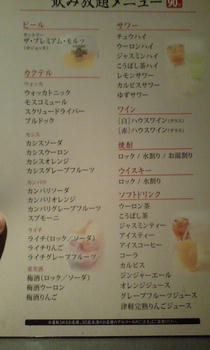 飲み放題メニュー 90
ビール
ザ・プレミアム・モルツ
カクテル
ウォッカ
ウォッカトニック
モスコミュール
スクリュードライバー
ブルドック
カシス
カシスソーダ
カシスウーロン
カシスオレンジ
カシスグレープフルーツ
カンパリ
カンパリソーダ
カンパリオレンジ
カンパリグレープフルーツ
スプモーニ
ライチ
ライチ(ロック/ソーダ)
ライチオレンジ
ライチグレープフルーツ
果実酒
梅酒(ロック/ソーダ)
梅酒ウーロン
梅酒りんご
サワー
チュウハイ
ウーロンハイ
ジャスミンハイ
こうぼし茶ハイ
レモンサワー
カルピスサワー
ゆずサワー
ワイン
[白]ハウスワイン(グラス)
[赤]ハウスワイン(グラス)
焼酎
ロック / 水割り / お湯割り
ウイスキー
ロック / 水割り
ソフトドリンク
ウーロン茶
こうぼし茶
ジャスミンティー
アイスティー
アイスコーヒー
コーラ
カルピス
ジンジャーエール
オレンジジュース
グレープフルーツジュース
津軽完熟りんごジュース